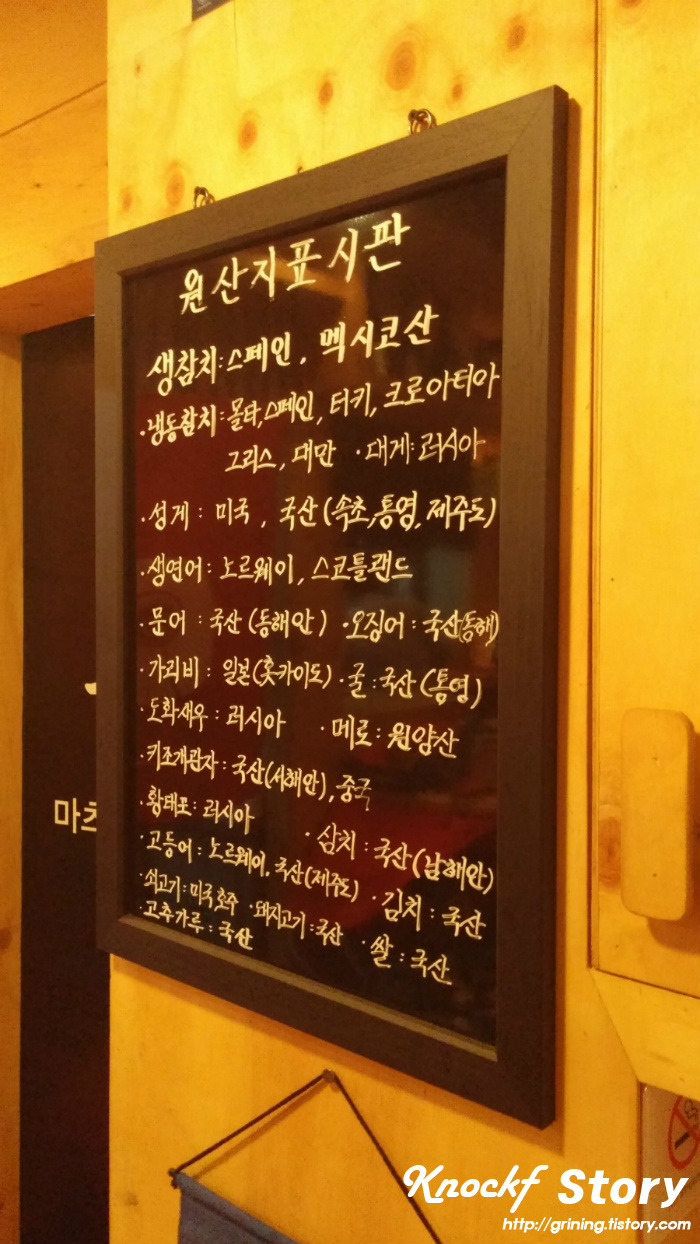 원산지표시판
생참치:스페인, 멕시코산
·냉동참치:몰타,스페인, 터키, 크로아티아
그리스, 대만 ·대게:러시아
·성게: 미국, 국산(속초,통영, 제주도)
·생연어: 노르웨이, 스코틀랜드
·문어: 국산(동해안) ·오징어: 국산(동해)
·가리비: 일본(홋카이도) ·굴:국산(통영)
·도화새우: 러시아 ·메로: 원양산
·키조개관자: 국산(서해안),중국
·황태포: 러시아
·삼치: 국산(남해안)
·고등어: 노르웨이, 국산(제주도)
·김치: 국산
·쇠고기:미국 호주 ·돼지고기:국산
·쌀:국산
·고추가루: 국산
마츠
Knockf Story
http://grining.tistory.com